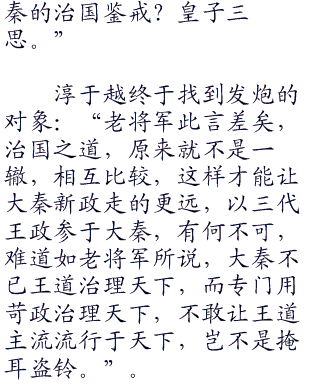 秦的治国鉴戒？皇子三
思。”
淳于越终于找到发炮的
对象：“老将军此言差矣，
治国之道，原来就不是一
辙，相互比较，这样才能让
大秦新政走的更远，以三代
王政参于大秦，有何不可，
难道如老将军所说，大秦不
已王道治理天下，而专门用
苛政治理天下，不敢让王道
主流流行于天下，岂不是掩
耳盗铃。”。